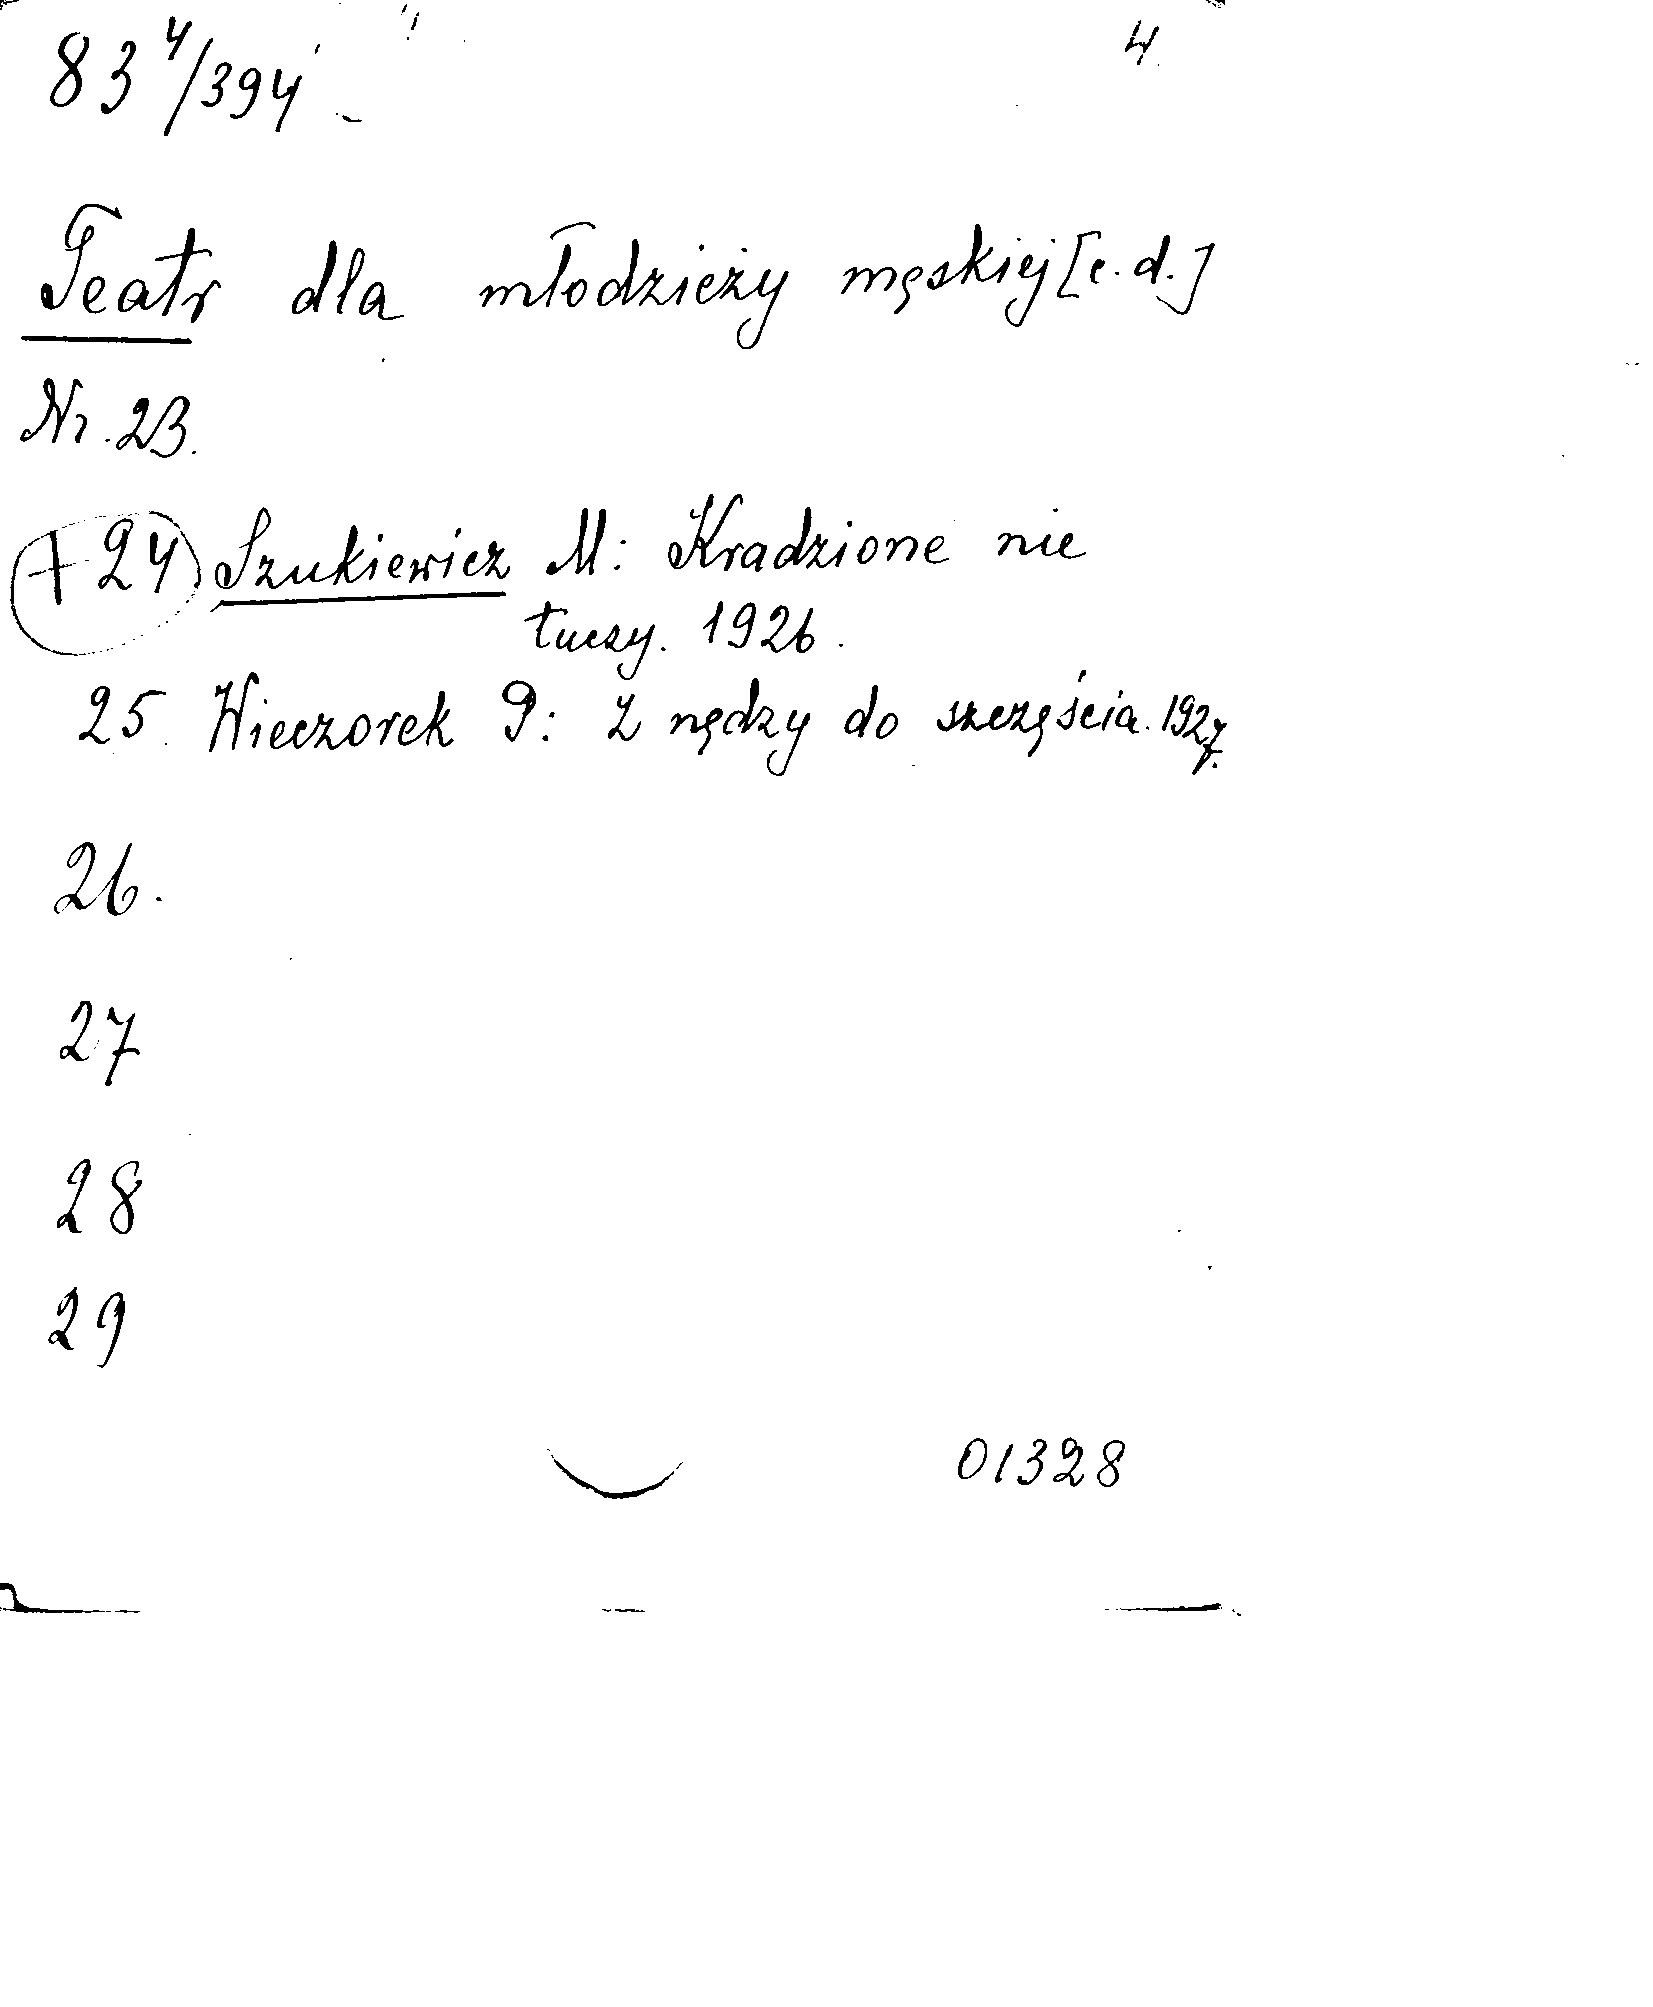 83 4/394 4
Teatr dla młodzieży męskiej [c.d.]
Nr. 23.
+ 24 Szukiewicz M: Kradzione nie
tuczy. 1926.
25. Wieczorek P: Z nędzy do szczęścia. 1927.
26.
27
28
29
01328